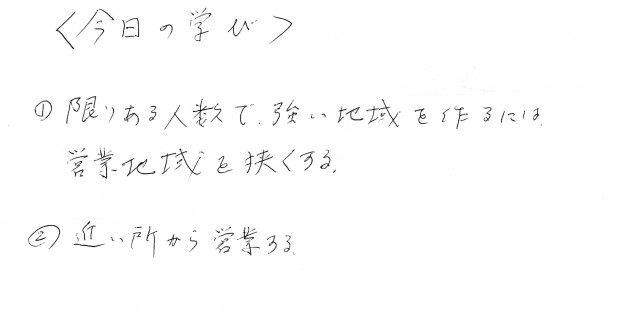 〈今日の学び〉
① 限りある人数で、強い地域を作るには、
営業地域を狭くする。
② 近い所から営業する。